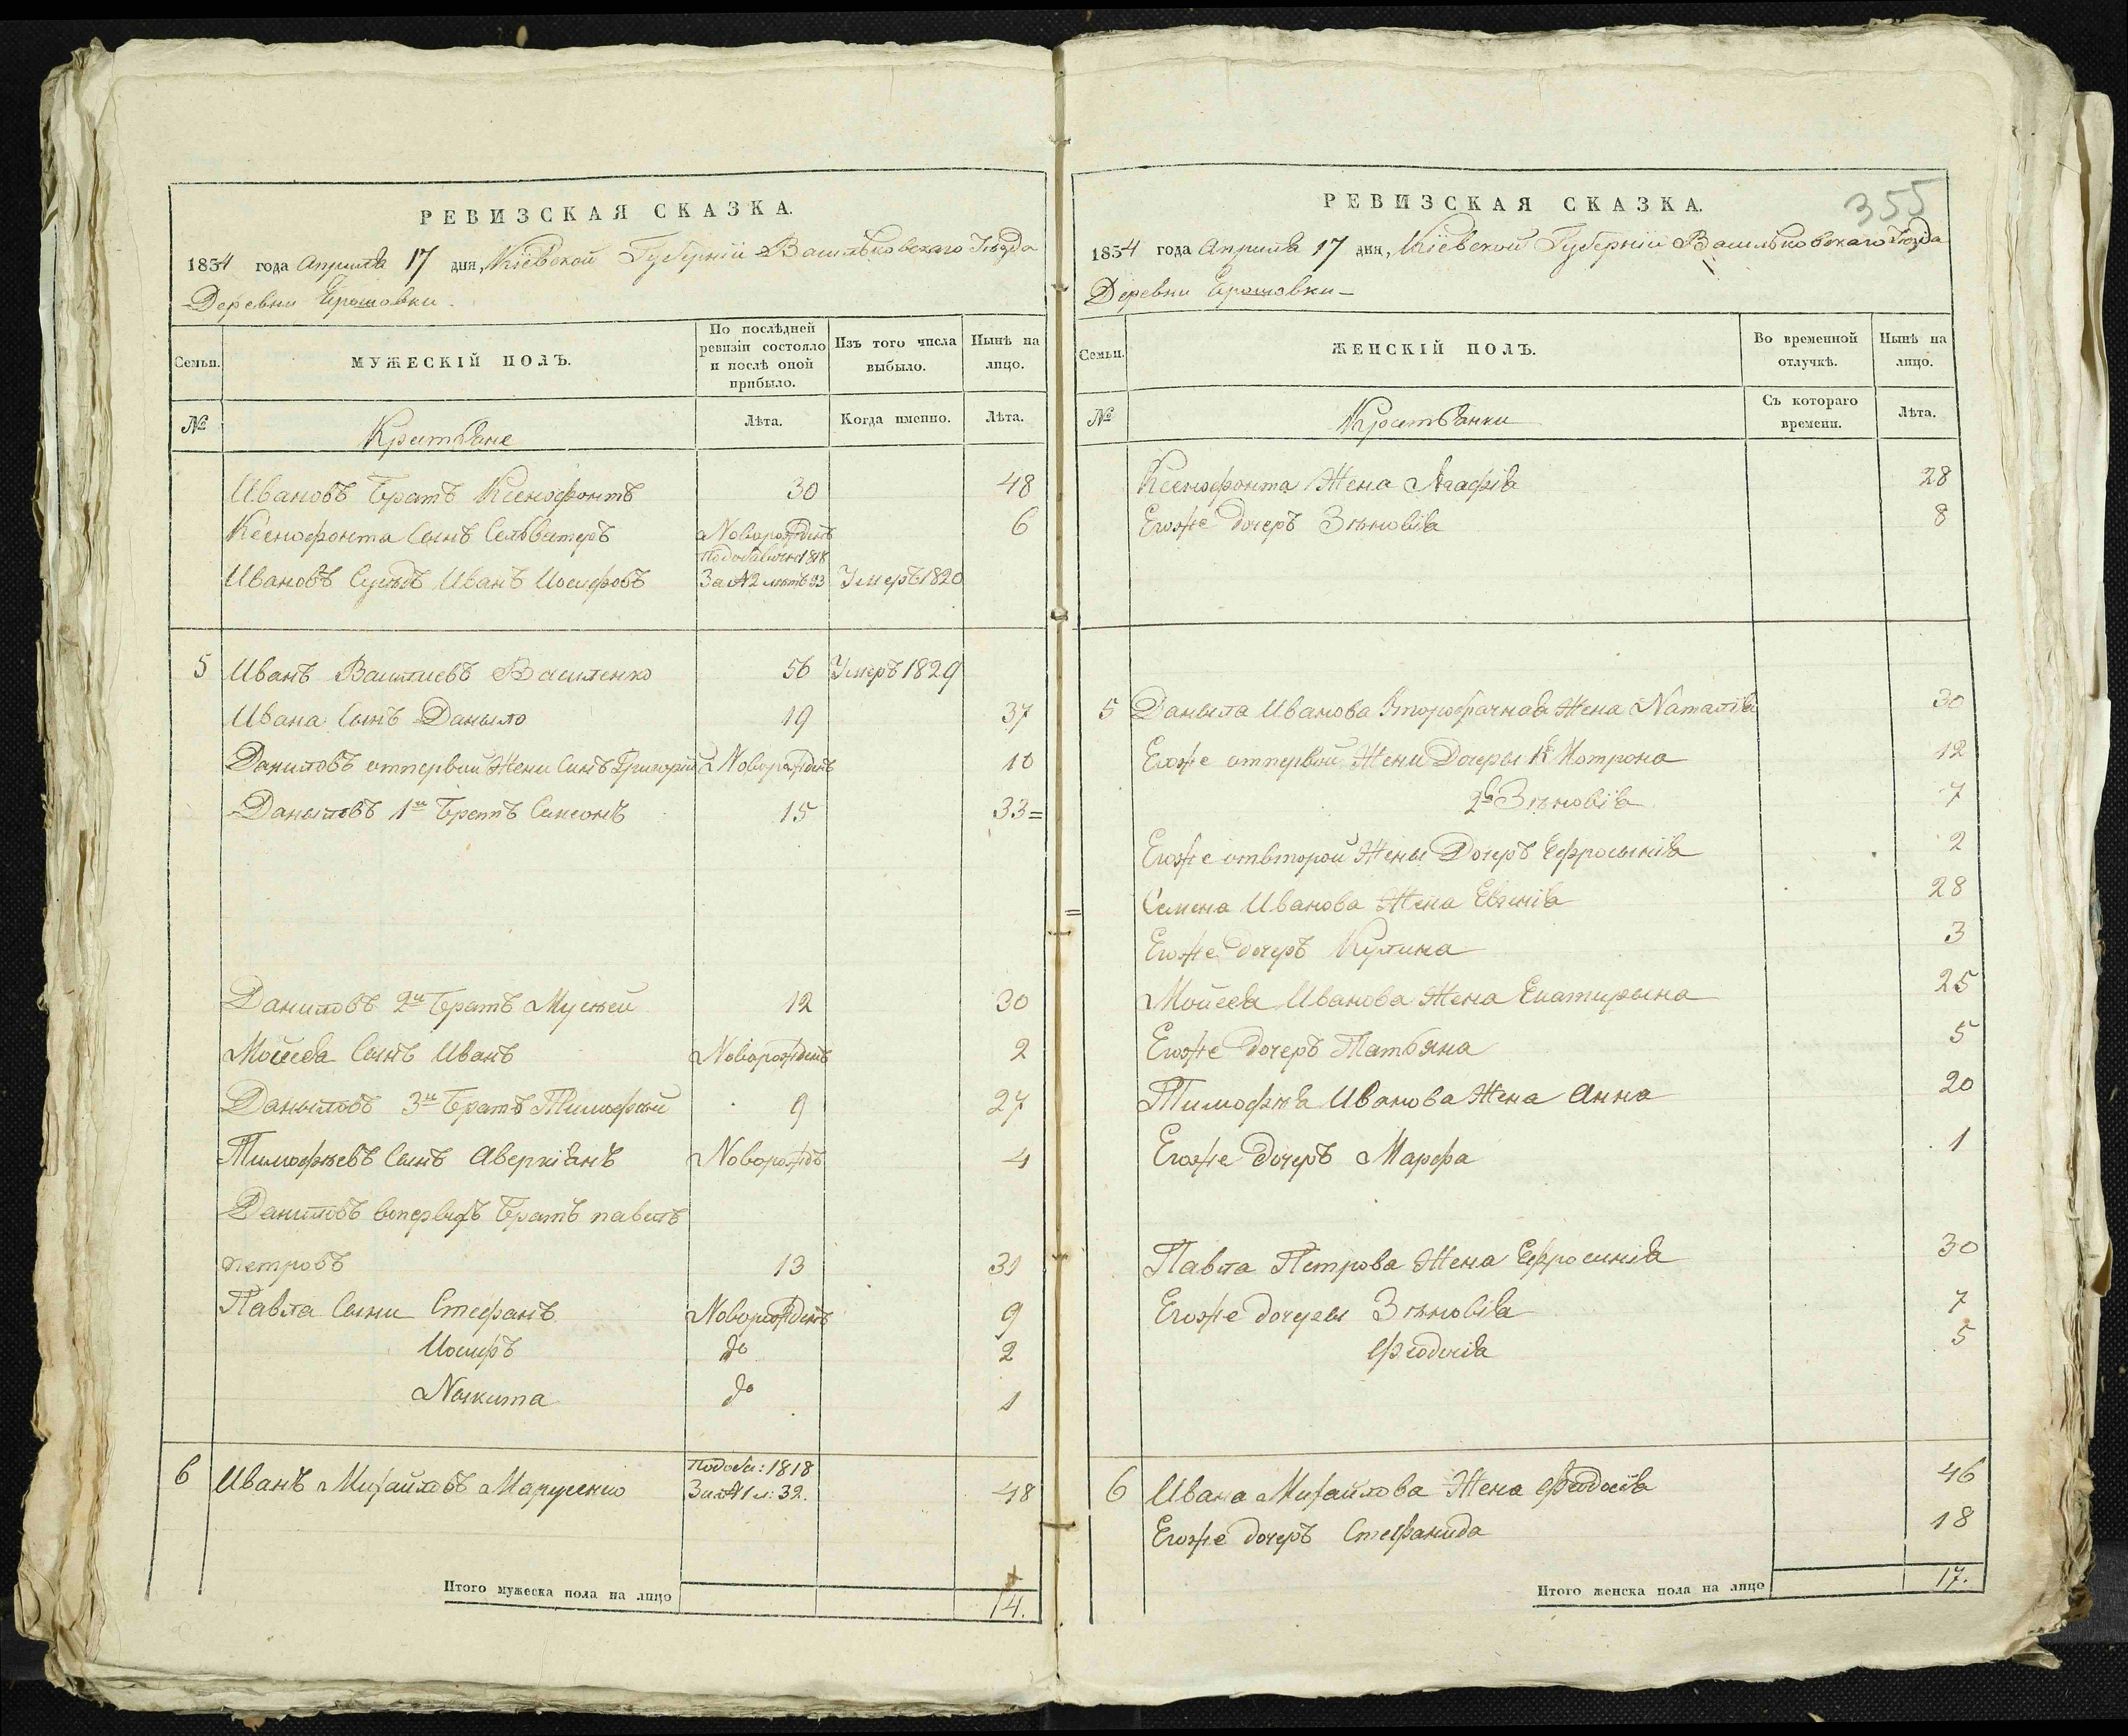 РЕВИЗСКАЯ СКАЗКА.
1834 года Апрѣля 17 дня, Кіевской Губерніи Васильковскаго Уѣзда
Деревни Ерошовки
Семьи.
МУЖЕСКІЙ ПОЛЪ.
По послѣдней ревизіи состояло и послѣ оной прибыло.
Изъ того числа выбыло.
Нынѣ на лицо.
№
Крестьяне
Лѣта.
Когда именно.
Лѣта.
Ивановъ Братъ Ксенофонтъ 30 48
Ксенофонта Сынъ Сельвестеръ Новорожденъ 6
Ивановъ Иванъ Иосифовъ За №2 лѣтъ 93 Умеръ 1820
5 Иванъ Василиевъ Василенко 56 Умеръ 1829
Ивана Сынъ Даныло 19 37
Даниловъ отпервой Жени Синъ Григорій Новорожденъ 10
Даныловъ 1й Братъ Симеонъ 15 33=
Даниловъ 2й Братъ Мусѣей 12 30
Мойсея Сынъ Иванъ Новорожденъ 2
Даныловъ 3й Братъ Тимофѣй 9 27
Тимофѣевъ Сынъ Аверкіянъ Новорождъ 4
Даниловъ Братъ павелъ
петровъ 13 31
Павла Сыни Стефанъ Новорожденъ 9
Иосифъ до 2
Никита до 1
6 Иванъ Михайловъ Марусенко По доба: 1818 За №1 л: 32. 48
Итого мужеска пола на лицо 14.
РЕВИЗСКАЯ СКАЗКА.
355
1834 года Апрѣля 17 дня, Кіевской Губерніи Васильковскаго Уѣзда
Деревни Ерошовки
Семьи.
ЖЕНСКІЙ ПОЛЪ.
Во временной отлучкѣ.
Нынѣ на лицо.
№
Крестьянки
Съ котораго времени.
Лѣта.
Ксенофонта Жена Агафія 28
Егоже дочеръ Зѣновія 8
5 Даныла Иванова Второбрачная Жена Наталія 30
Егоже отпервой Жени Дочеры 1я Мотрона 12
2я Зѣновія 7
Егоже отвторой Жены Дочеръ Ефросынія 2
Семена Иванова Жена Евгенія 28
Егоже дочеръ Кулина 3
Мойсея Иванова Жена Екатирына 25
Егоже дочеръ Татьяна 5
Тимофѣя Иванова Жена Анна 20
Егоже дочеръ Марфа 1
Павла Петрова Жена Ефросинія 30
Егоже дочеры Зѣновія 7
Феодосія 5
6 Ивана Михайлова Жена Феодосія 46
Егоже дочеръ Стефанида 18
Итого женска пола на лицо 17.